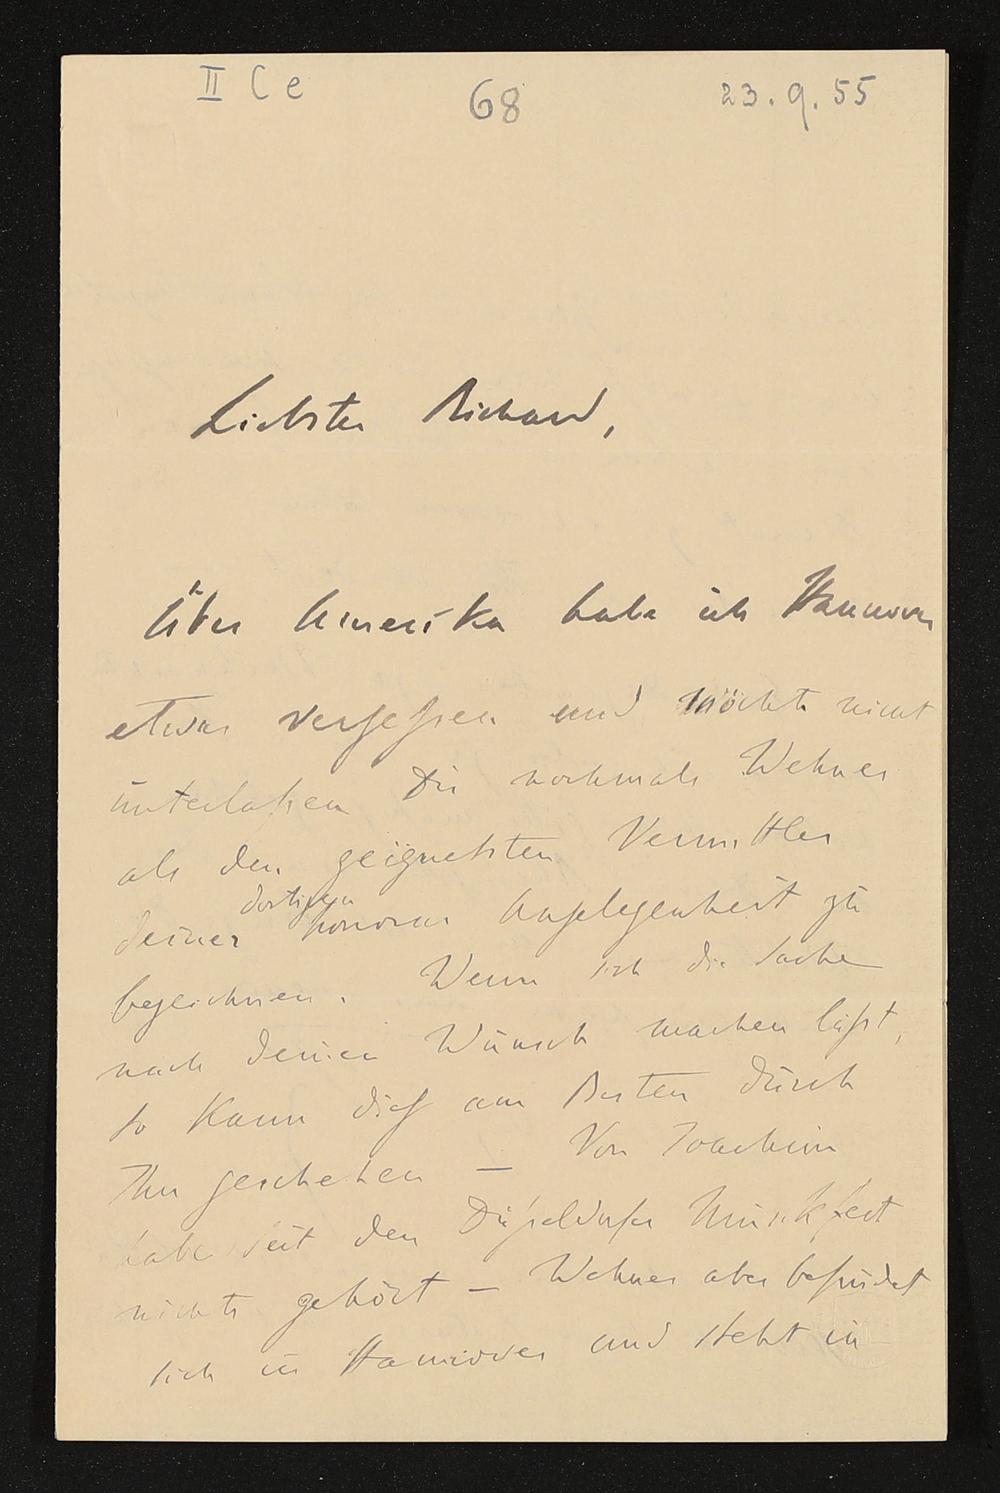 II C e 68 23.9.55
Liebster Richard,
Über Amerika habe ich Hannover
etwas vergeßen und möchte nicht
unterlaßen Dir nochmals Wehner
als den geeignetsten Vermittler
dortigen
deiner Angelegenheit zu
bezeichnen. Wenn sich die Sache
nach deinen Wunsch machen läßt,
so kann dieß am Besten durch
Ihn geschehen — Von Joachim
habe seit den Düßeldorfer Musikfest
nichts gehört — Wehner aber befindet
sich in Hannover und steht in